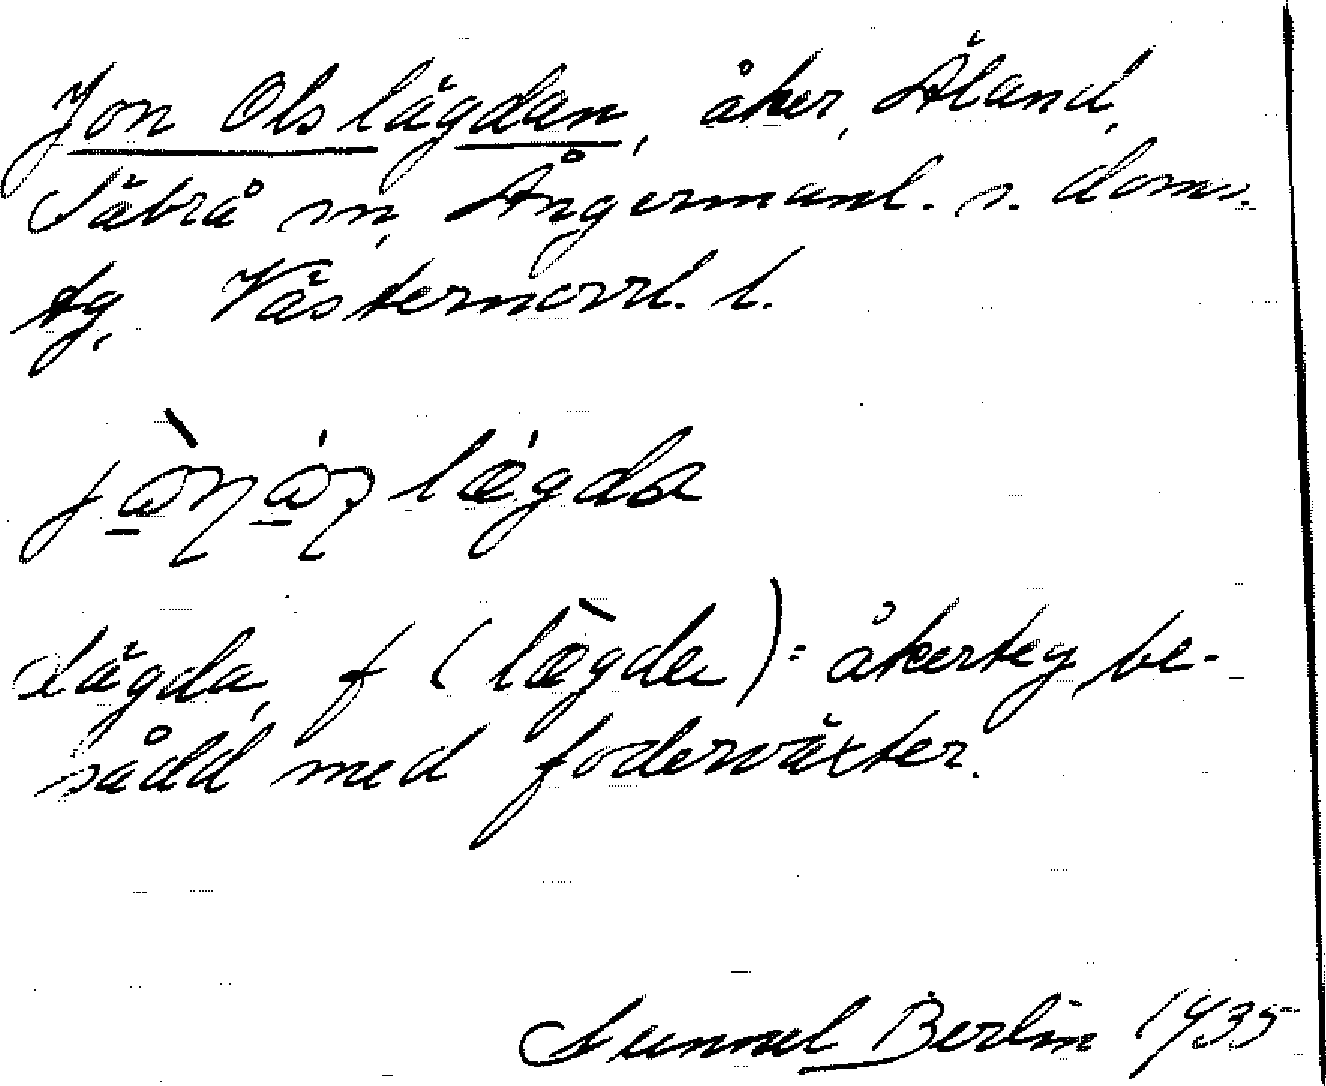 Jon Ols lägdan, åker, Äland,
Säbrå sn, Ångermanl. s. doms.
tg, Västernorrl. l.
lägda, f (lægda) = åkerteg be-
sådd med foderväxter.
Gunnel Berlin 1935